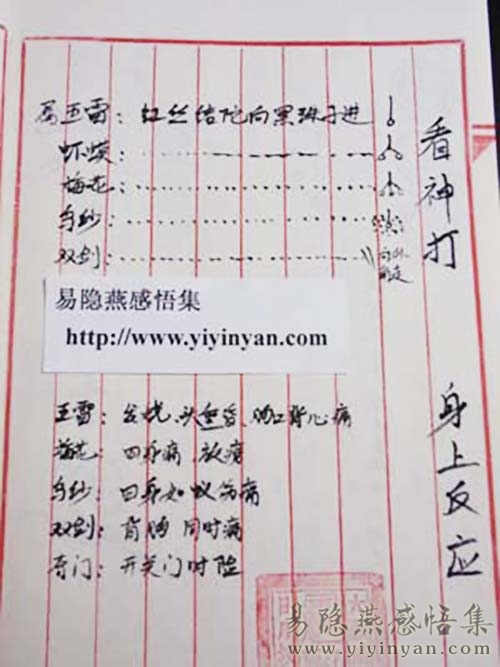 看神打
五雷：红丝结陀向黑珠子进
虾蟆：
梅花：
乌纱：
双剑：
易隐燕感悟集
http://www.yiyinyan.com
身上反应
五雷：发烧、头重昏、胸口背心痛
梅花：四身痛
乌纱：四身如蚁伤痛
双剑：背胸同时痛
奇门：开关门时险
易隐燕感悟集
www.yiyinyan.com